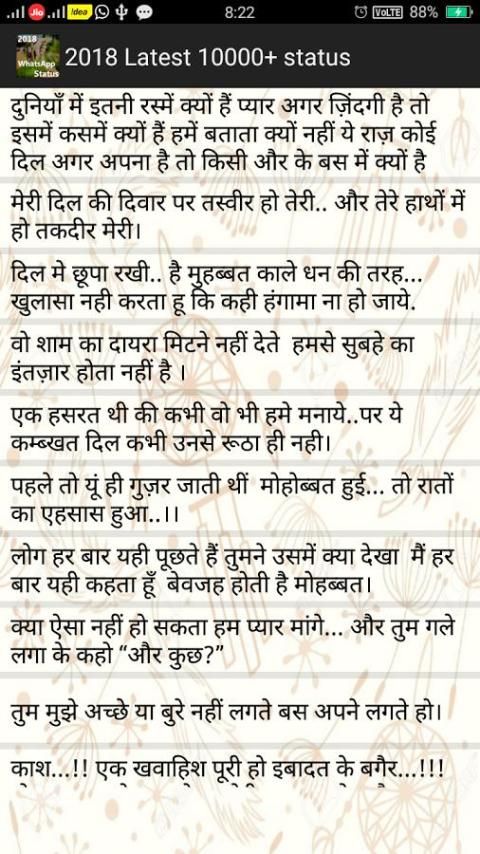 Jio Idea VoLTE 8:22 88%
2018 WhatsApp Status
2018 Latest 10000+ status
दुनियाँ में इतनी रस्में क्यों हैं प्यार अगर ज़िंदगी है तो
इसमें कसमें क्यों हैं हमें बताता क्यों नहीं ये राज़ कोई
दिल अगर अपना है तो किसी और के बस में क्यों है
मेरी दिल की दिवार पर तस्वीर हो तेरी.. और तेरे हाथों में
हो तकदीर मेरी।
दिल मे छूपा रखी.. है मुहब्बत काले धन की तरह...
खुलासा नही करता हू कि कही हंगामा ना हो जाये.
वो शाम का दायरा मिटने नहीं देते हमसे सुबहे का
इंतज़ार होता नहीं है ।
एक हसरत थी की कभी वो भी हमे मनाये..पर ये
कम्ब्खत दिल कभी उनसे रूठा ही नही।
पहले तो यूं ही गुज़र जाती थीं मोहोब्बत हुई... तो रातों
का एहसास हुआ..।।
लोग हर बार यही पूछते हैं तुमने उसमें क्या देखा मैं हर
बार यही कहता हूँ बेवजह होती है मोहब्बत।
क्या ऐसा नहीं हो सकता हम प्यार मांगे... और तुम गले
लगा के कहो “और कुछ?”
तुम मुझे अच्छे या बुरे नहीं लगते बस अपने लगते हो।
काश...!! एक खवाहिश पूरी हो इबादत के बगैर...!!!